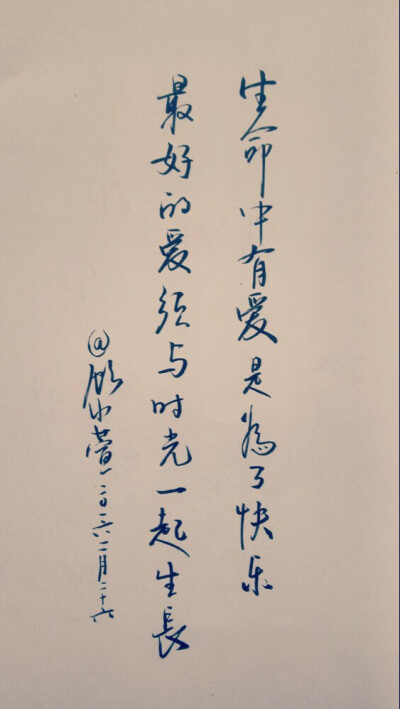 生命中有爱是為了快乐
最好的爱须与时光一起生長
@顾小萱 二〇一六二月二十六